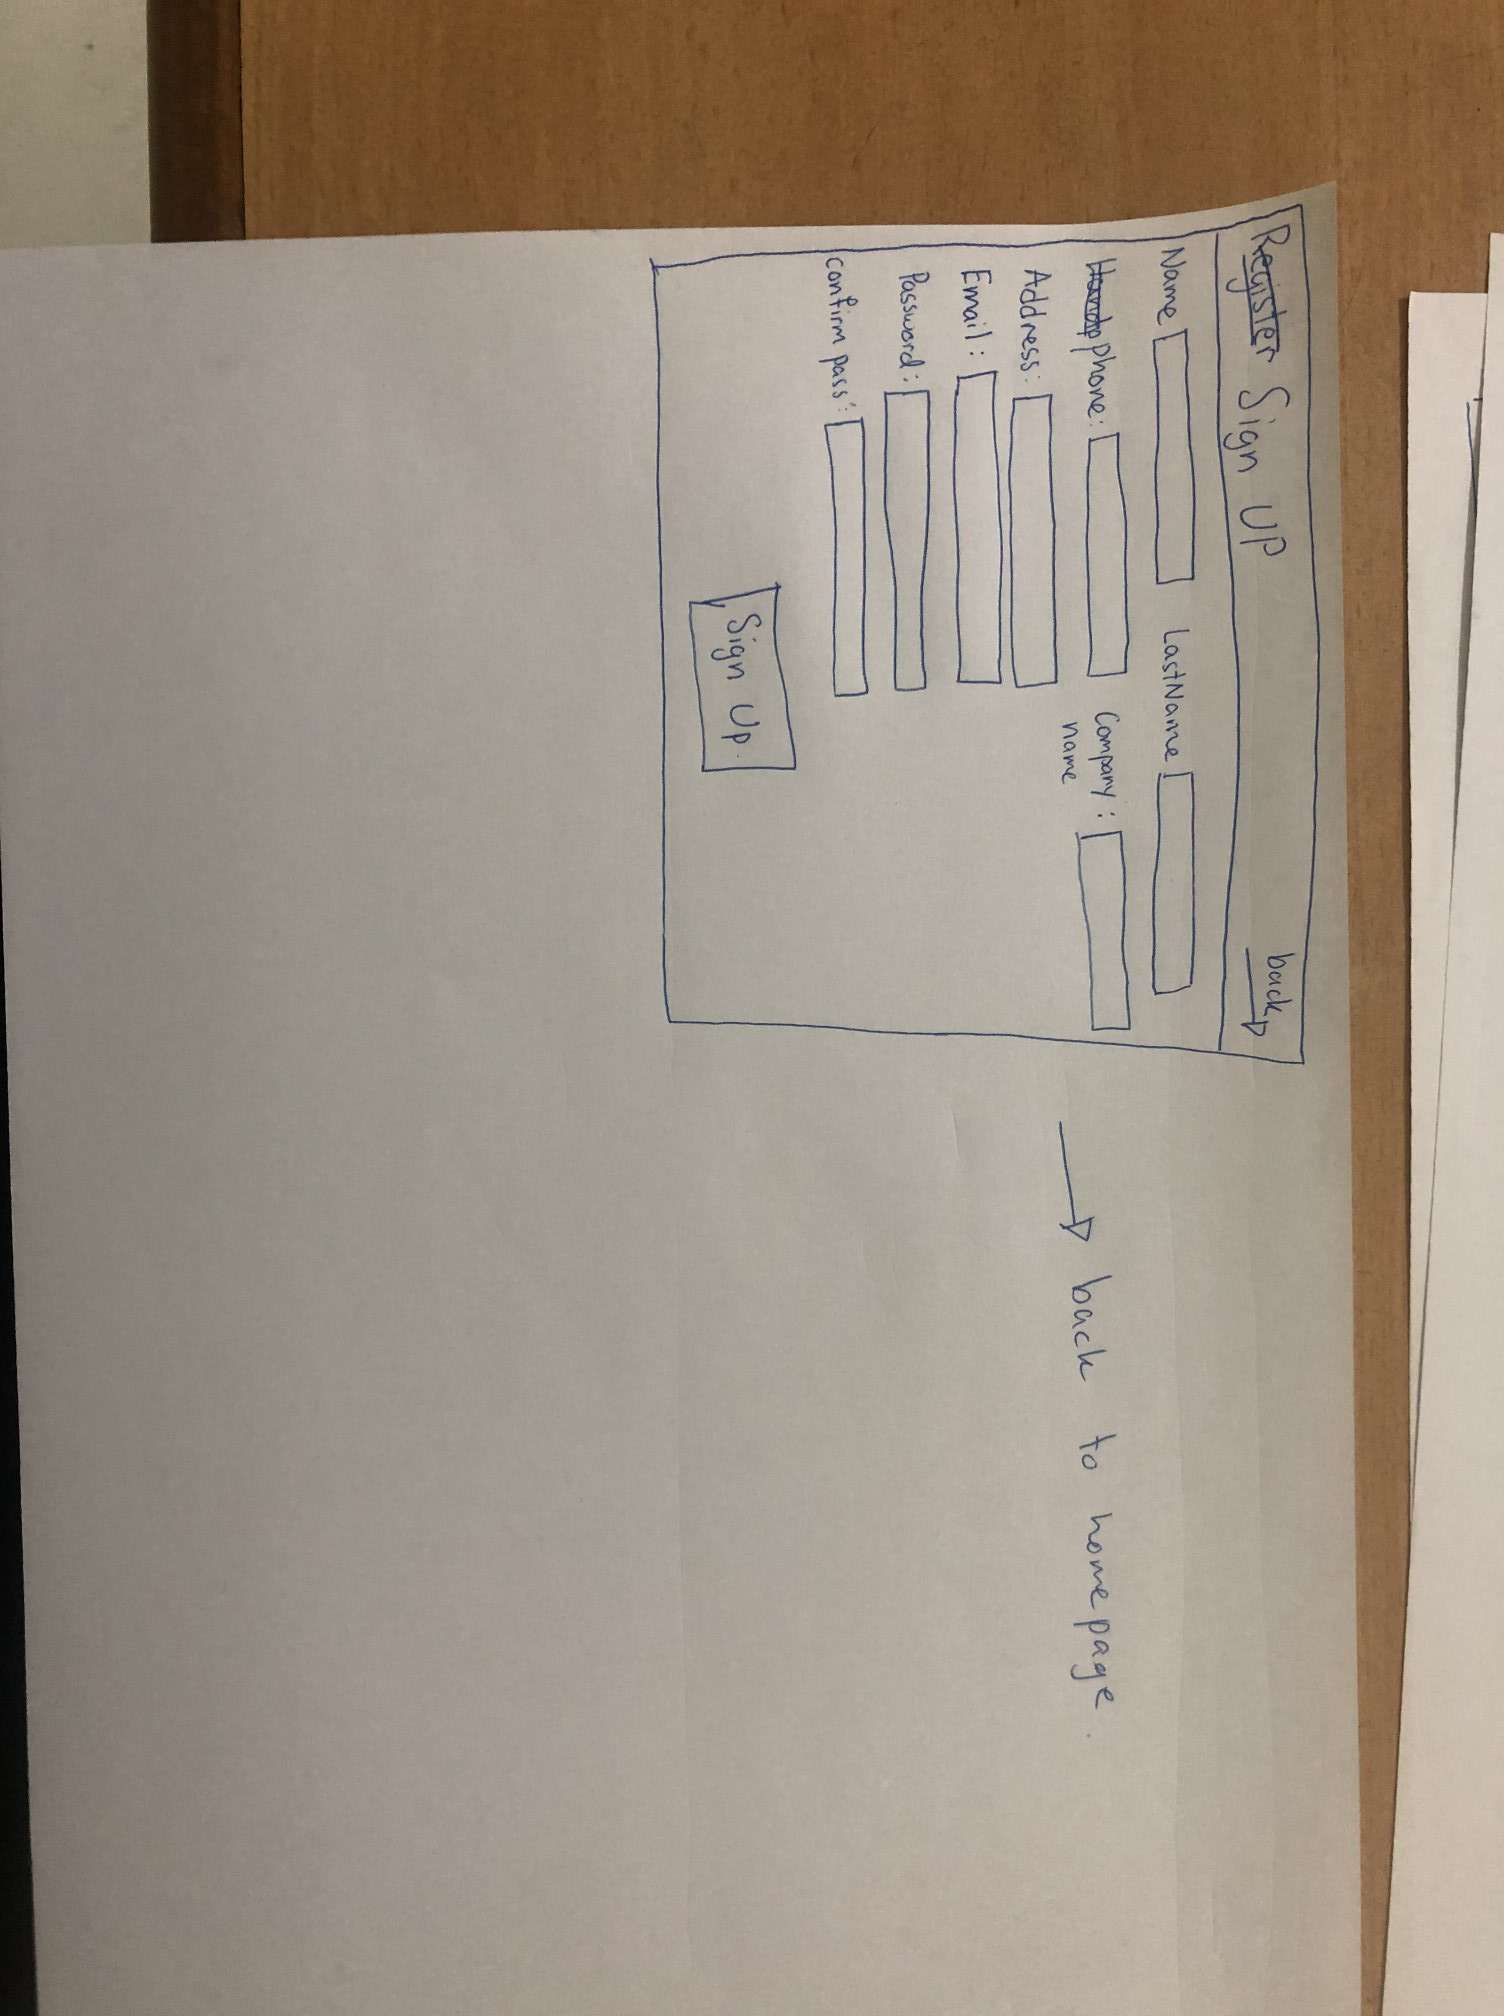 Register Sign UP back
Name LastName
Handp phone: Company :
name
Address:
Email :
Password:
confirm pass:
Sign Up.
back to homepage.